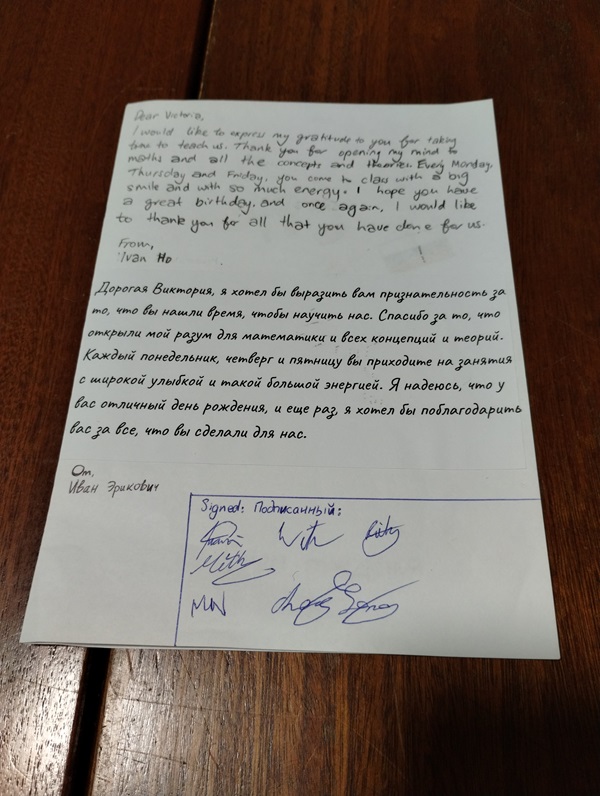 Dear Victoria,
I would like to express my gratitude to you for taking
time to teach us. Thank you for opening my mind to
maths and all the concepts and theories. Every Monday,
Thursday and Friday, you come to class with a big
smile and with so much energy. I hope you have
a great birthday, and once again, I would like
to thank you for all that you have done for us.
From,
Ivan Ho
Дорогая Виктория, я хотел бы выразить вам признательность за
то, что вы нашли время, чтобы научить нас. Спасибо за то, что
открыли мой разум для математики и всех концепций и теорий.
Каждый понедельник, четверг и пятницу вы приходите на занятия
с широкой улыбкой и такой большой энергией. Я надеюсь, что у
вас отличный день рождения, и еще раз, я хотел бы поблагодарить
вас за все, что вы сделали для нас.
От,
Иван Эрикович
Signed: Подписанный: